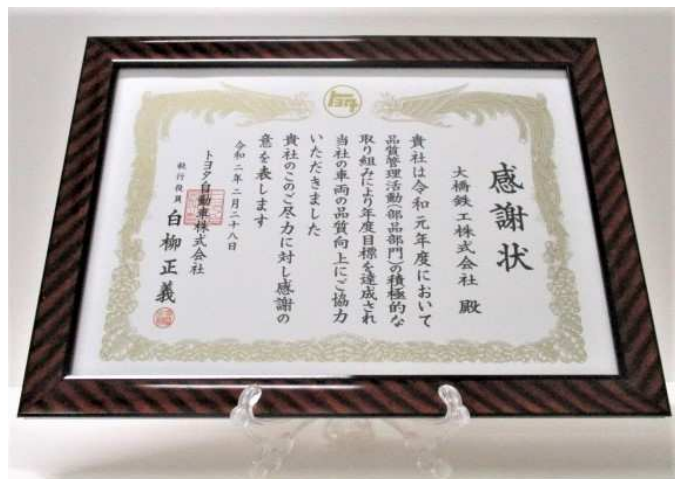 トヨタ
感謝状
大橋鉄工株式会社 殿
貴社は令和元年度において
品質管理活動(部品部門)の積極的な
取り組みにより年度目標を達成され
当社の車両の品質向上にご協力
いただきました
貴社のこのご尽力に対し感謝の
意を表します
令和二年二月二十八日
トヨタ自動車株式会社
執行役員 白柳正義